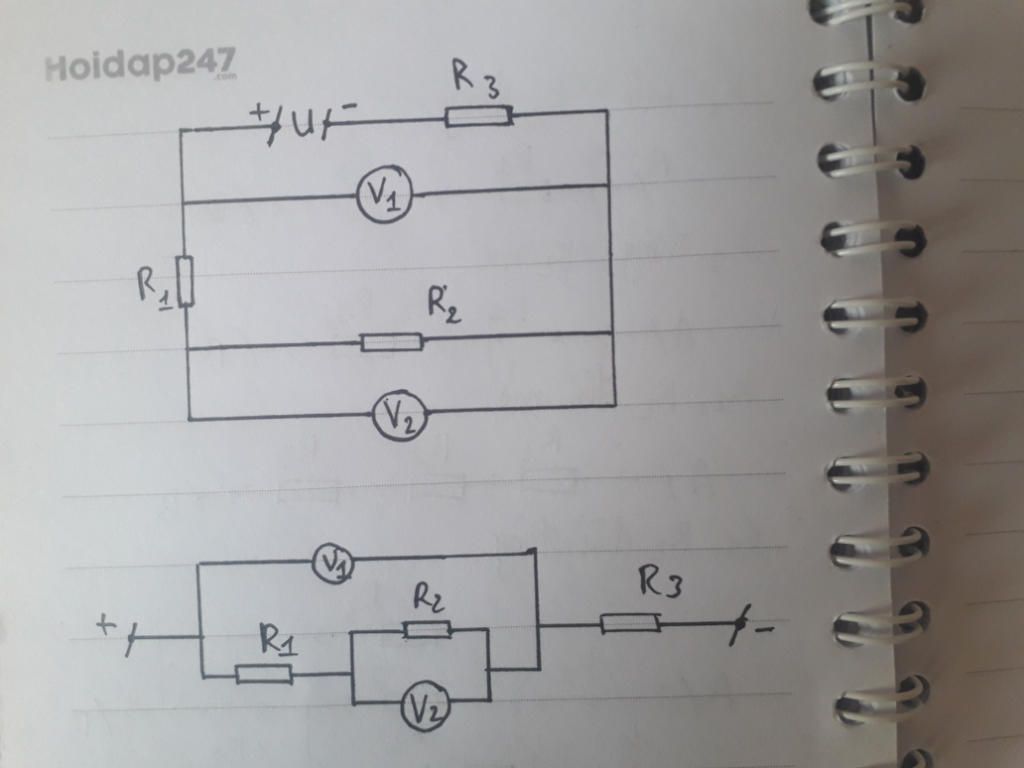 Hoidap247
.com
R3
+ U -
V1
R1
R2
V2
V1
R3
R2
+
R1
-
V2